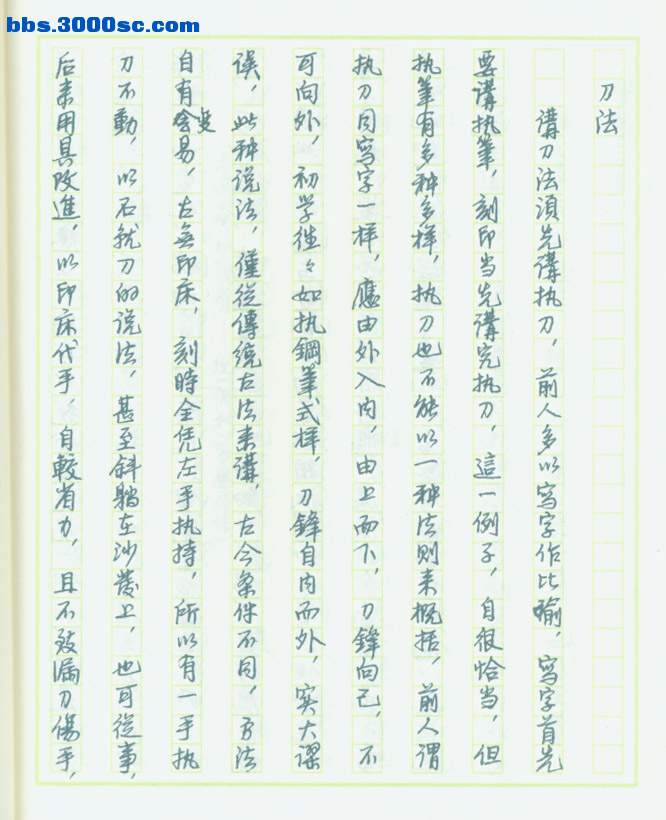 bbs.3000sc.com
刀法
講刀法須先講执刀，前人多以寫字作比喻，寫字首先
要講执筆，刻印当先講究执刀，這一例子，自很恰当，但
执筆有多种多样，执刀也不能以一种法则来概括，前人谓
执刀同寫字一样，應由外入内，由上而下，刀鋒向己，不
可向外，初学徃々如执鋼筆式样，刀鋒自内而外，实大谬
误，此种说法，僅從傳统古法来講，古今条件不同，方法
自有变易，古無印床，刻時全凭左手执持，所以有一手执
刀不動，以石就刀的说法，甚至斜躺在沙發上，也可從事，
后来用具改進，以印床代手，自較省力，且不致漏刀傷手，